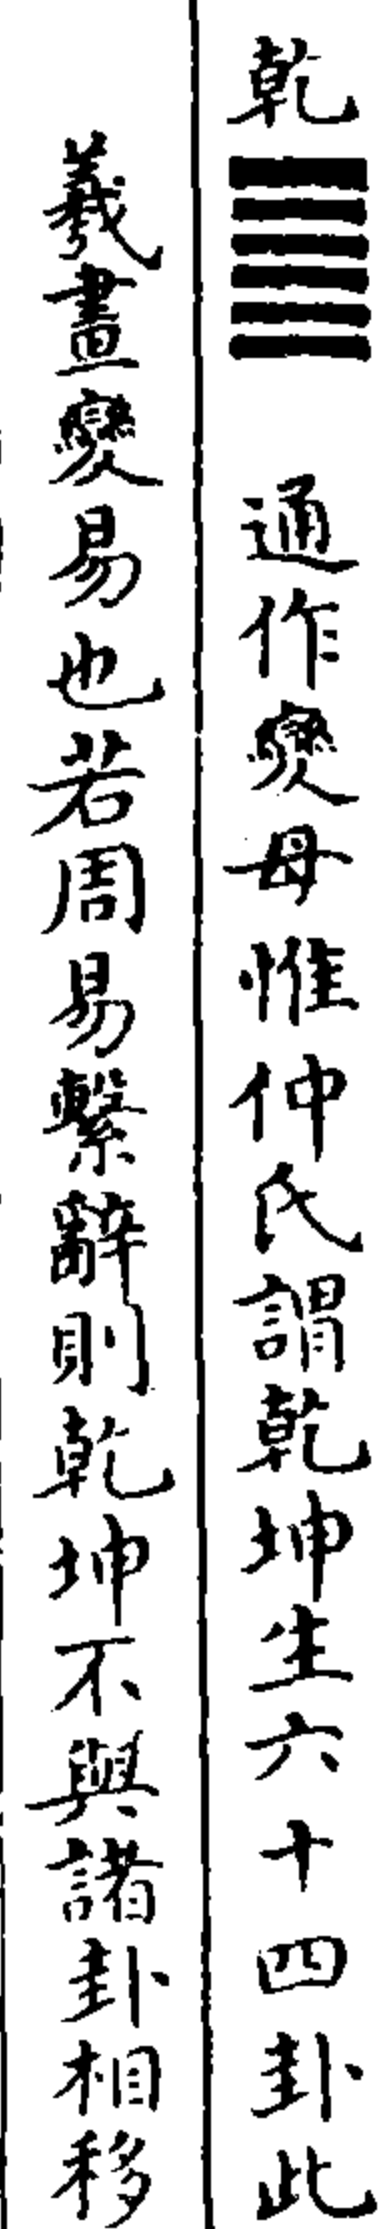 乾䷀ 通作變母惟仲氏謂乾坤生六十四卦此
羲畫變易也若周易繫辭則乾坤不與諸卦相移